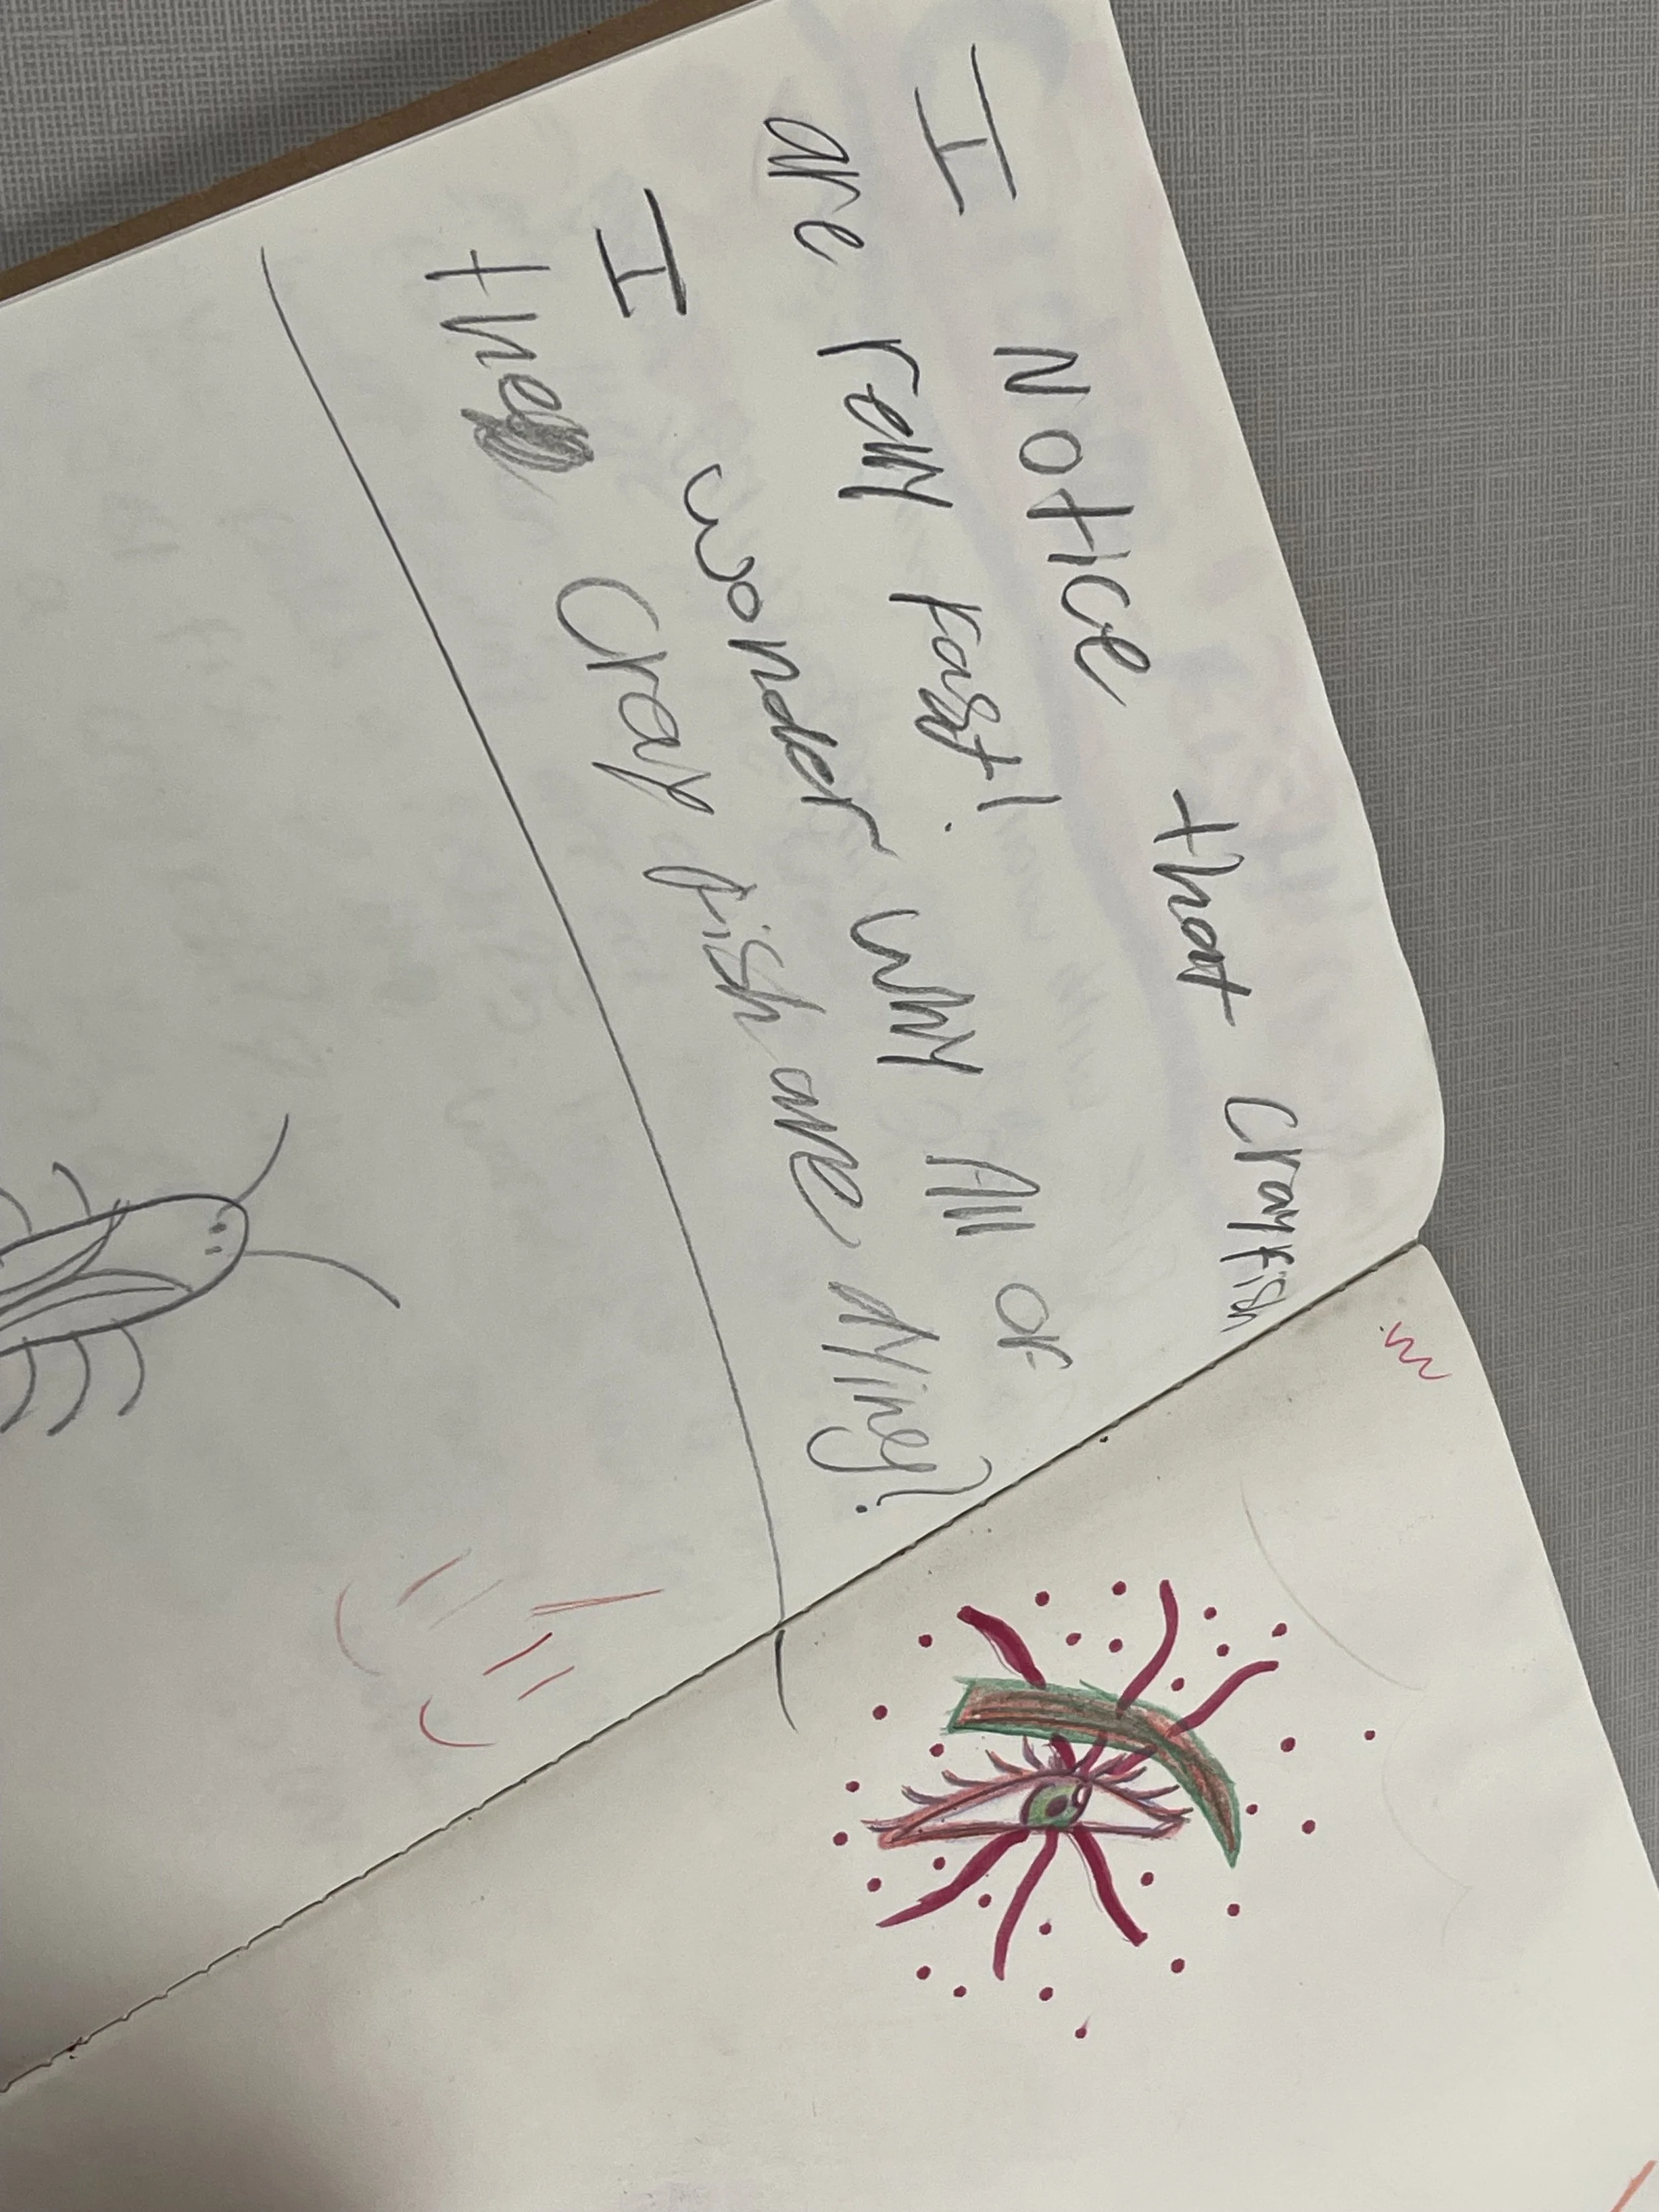 I Notice that Crayfish
are relly Fast!
I wonder why All of
the Cray fish are Miney?